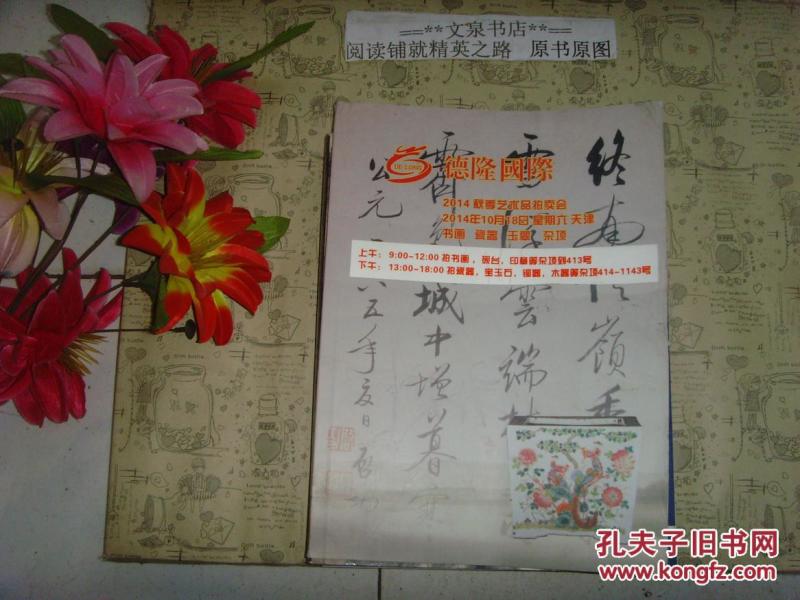 ==**文泉书店**==
阅读铺就精英之路 原书原图
DE LONG
德隆國際
2014 秋季艺术品拍卖会
2014年10月18日 星期六 天津
书画 瓷器 玉器 杂项
上午: 9:00-12:00 拍书画, 砚台, 印章等杂项到413号
下午: 13:00-18:00 拍瓷器, 宝玉石, 铜器, 木器等杂项414-1143号
终南阴岭秀
雪浮雲端林
霽 城中增暮寒
公元一九八五年夏日 启功
孔夫子旧书网
www.kongfz.com